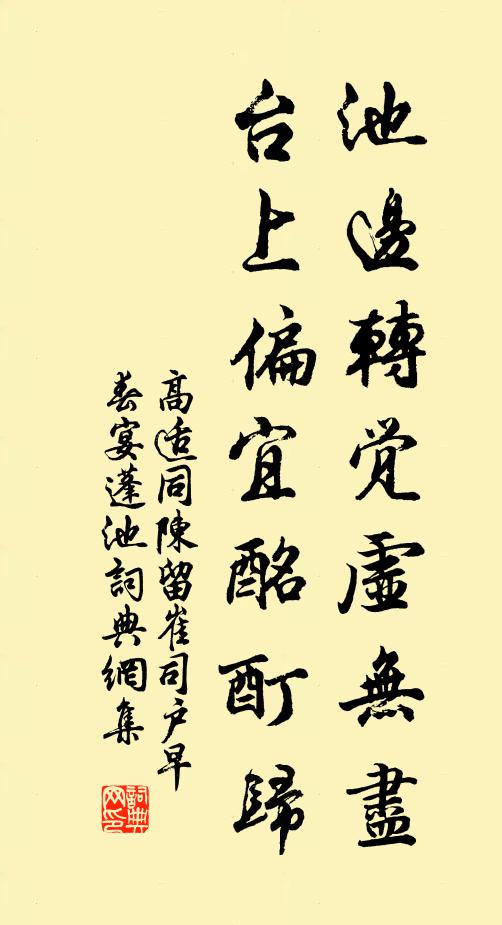 池邊轉覚虛無盡
台上偏宜酩酊歸
高适同陳留崔司户早
春宴蓬池詞典網集
詞典
网印